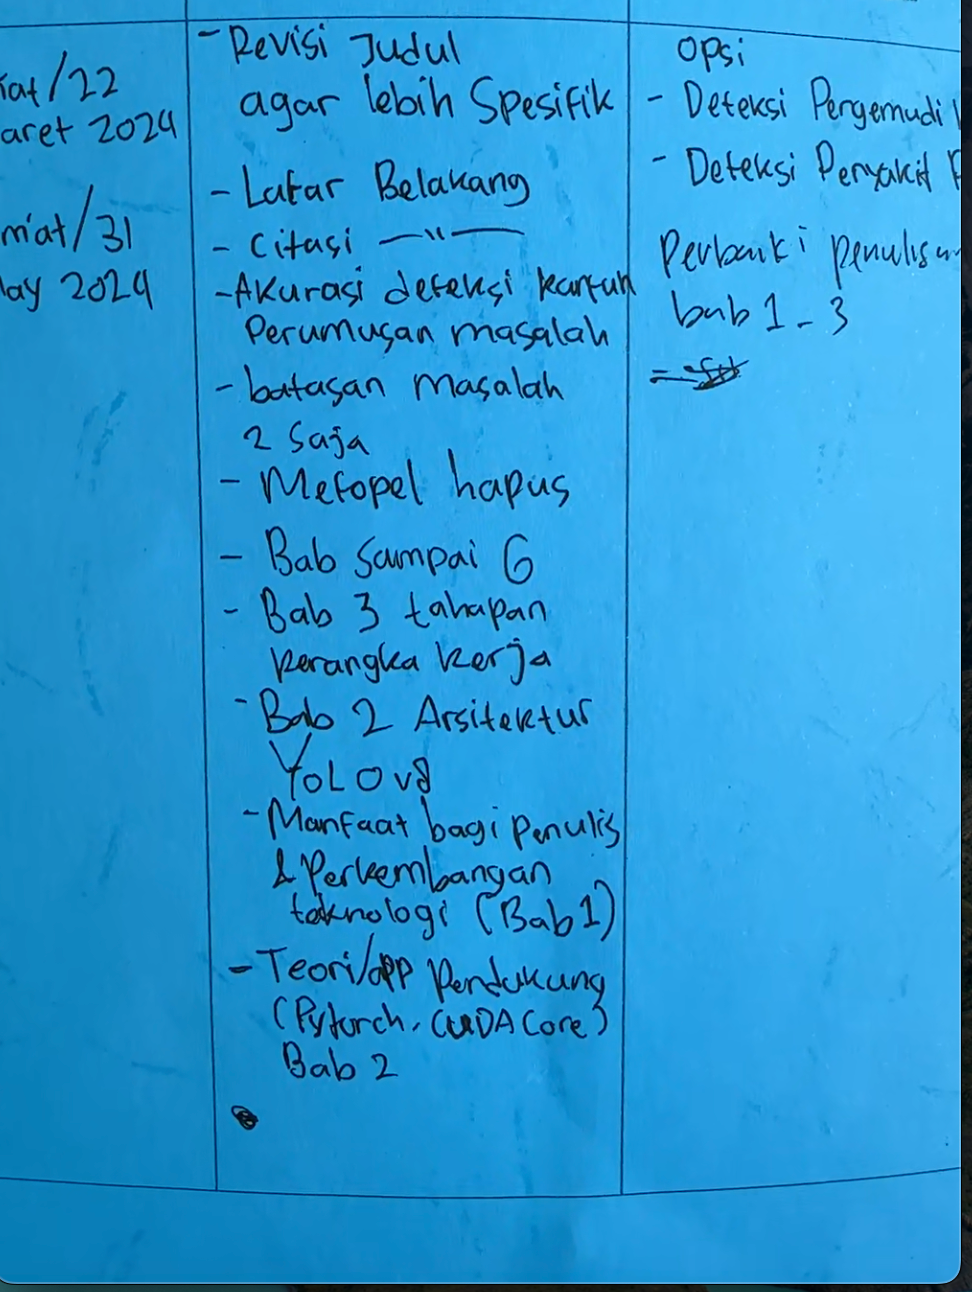 iat/22
aret 2024
m'at/31
ay 2024
- Revisi Judul
agar lebih Spesifik
- Latar Belakang
- Citasi —"—
- Akurasi deteksi kantuk
Perumusan masalah
- batasan masalah
2 Saja
- Metopel hapus
- Bab Sampai 6
- Bab 3 tahapan
kerangka kerja
- Bab 2 Arsitektur
YOLOv8
- Manfaat bagi penulis
& Perkembangan
teknologi (Bab 1)
- Teori/app Pendukung
(Pytorch, CUDA Core)
Bab 2
OPSi
- Deteksi Pengemudi
- Deteksi Penyakit
Perbaiki penulisan
bab 1 - 3